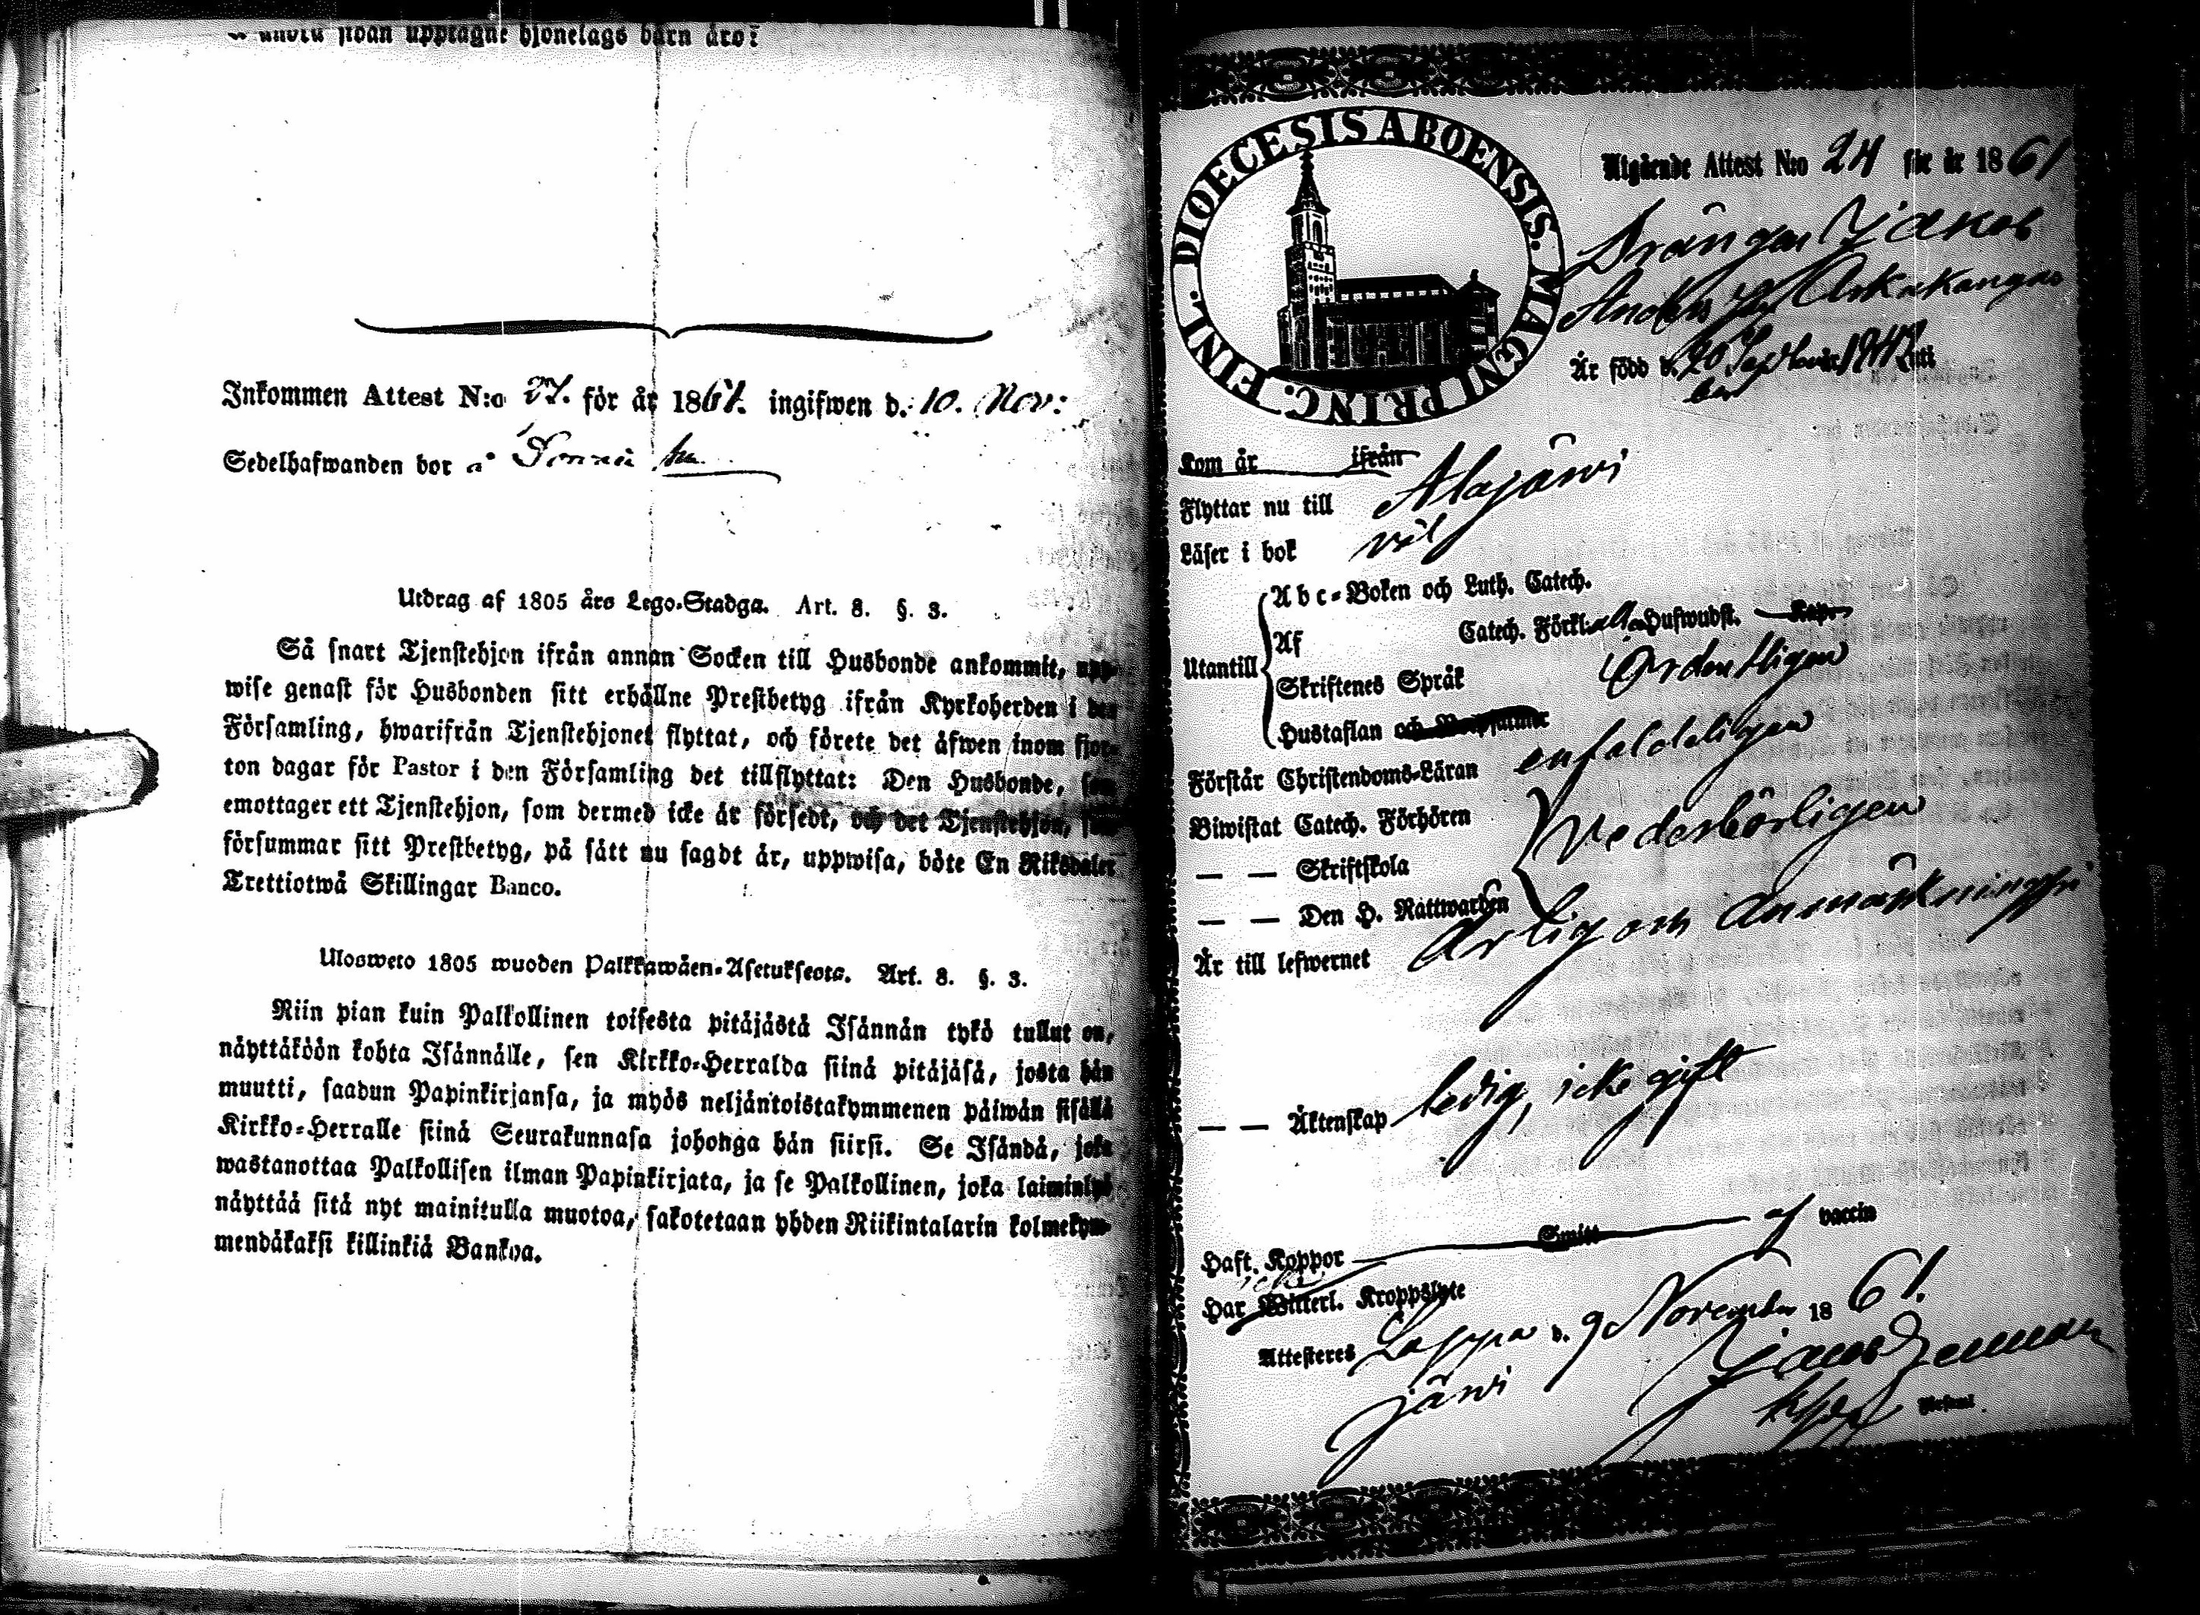 upptagne hjonelags barn äro:
Inkommen Attest N:o 27. för år 1861. ingifwen d. 10. Nov:
Sedelhafwanden bor å
Utdrag af 1805 års Lego-Stadga. Art. 8. §. 3.
Så snart Tjenstehjon ifrån annan Socken till Husbonde ankommit, upp-
wise genast för Husbonden sitt erhållne Prestbetyg ifrån Kyrkoherden i den
Församling, hwarifrån Tjenstehjonet flyttat, och förete det äfwen inom fjor-
ton dagar för Pastor i den Församling det tillflyttat: Den Husbonde, som
emottager ett Tjenstehjon, som dermed icke är försedt, och det Tjenstehjon, som
försummar sitt Prestbetyg, på sätt nu sagdt är, uppwisa, böte En Riksdaler
Trettiotwå Skillingar Banco.
Ulosweto 1805 wuoden Palkkawäen-Asetuksesta. Art. 8. §. 3.
Niin pian kuin Palkollinen toisesta pitäjästä Isännän tykö tullut on,
näyttäköön kohta Isännälle, sen Kirkko-Herralda siinä pitäjäsä, josta hän
muutti, saadun Papinkirjansa, ja myös neljäntoistakymmenen päiwän sisällä
Kirkko-Herralle siinä Seurakunnasa johonga hän siirsi. Se Isändä, joka
wastanottaa Palkollisen ilman Papinkirjata, ja se Palkollinen, joka laiminlyö
näyttää sitä nyt mainitulla muotoa, sakotetaan yhden Riikintalarin kolmekym-
mendäkaksi killinkiä Bankoa.
DIOECESIS ABOENSIS. MAGNI PRINC. FINL.
Utgående Attest N:o 24 för år 1861
Drängen Jakob
Anders Askakangas
Är född d. 20 Septem 184 uti
ber
Kom år ifrån
Flyttar nu till Alajärwi
Läser i bok väl
Abc-Boken och Luth. Catech.
Utantill Af Catech. Förkl. alla Hufwudst. Kap.
Skriftenes Språk Ordentligen
Hustaflan och
Förstår Christendoms-Läran enfaldeligen
Biwistat Catech. Förhören
— — Skriftskola Vederbörligen
— — Den H. Nattwarden
Är till lefwernet Ärlig och anmärkningsfri
— — Äktenskap ledig, icke gift
Haft Koppor Smitt af vaccin
Har icke Witterl. Kroppslyte
Attesteres Lappa d. 9 November 1861.
järwi